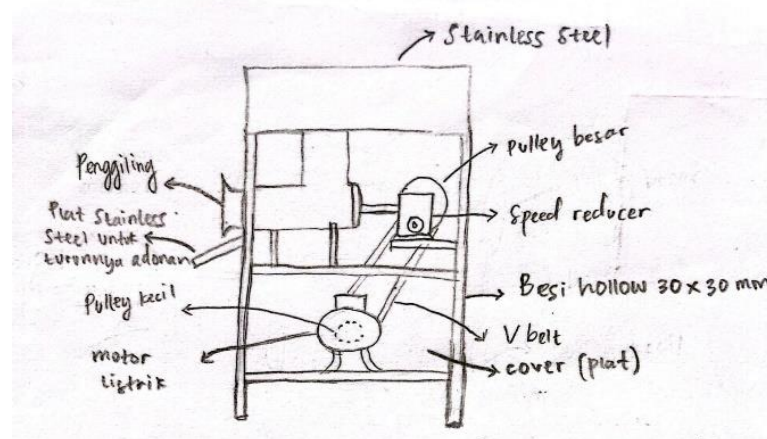 Stainless Steel
pulley besar
Penggiling
Plat Stainless
Steel untuk
turunnya adonan
Speed reducer
Besi hollow 30 x 30 mm
Pulley kecil
V belt
motor
listrik
cover (plat)